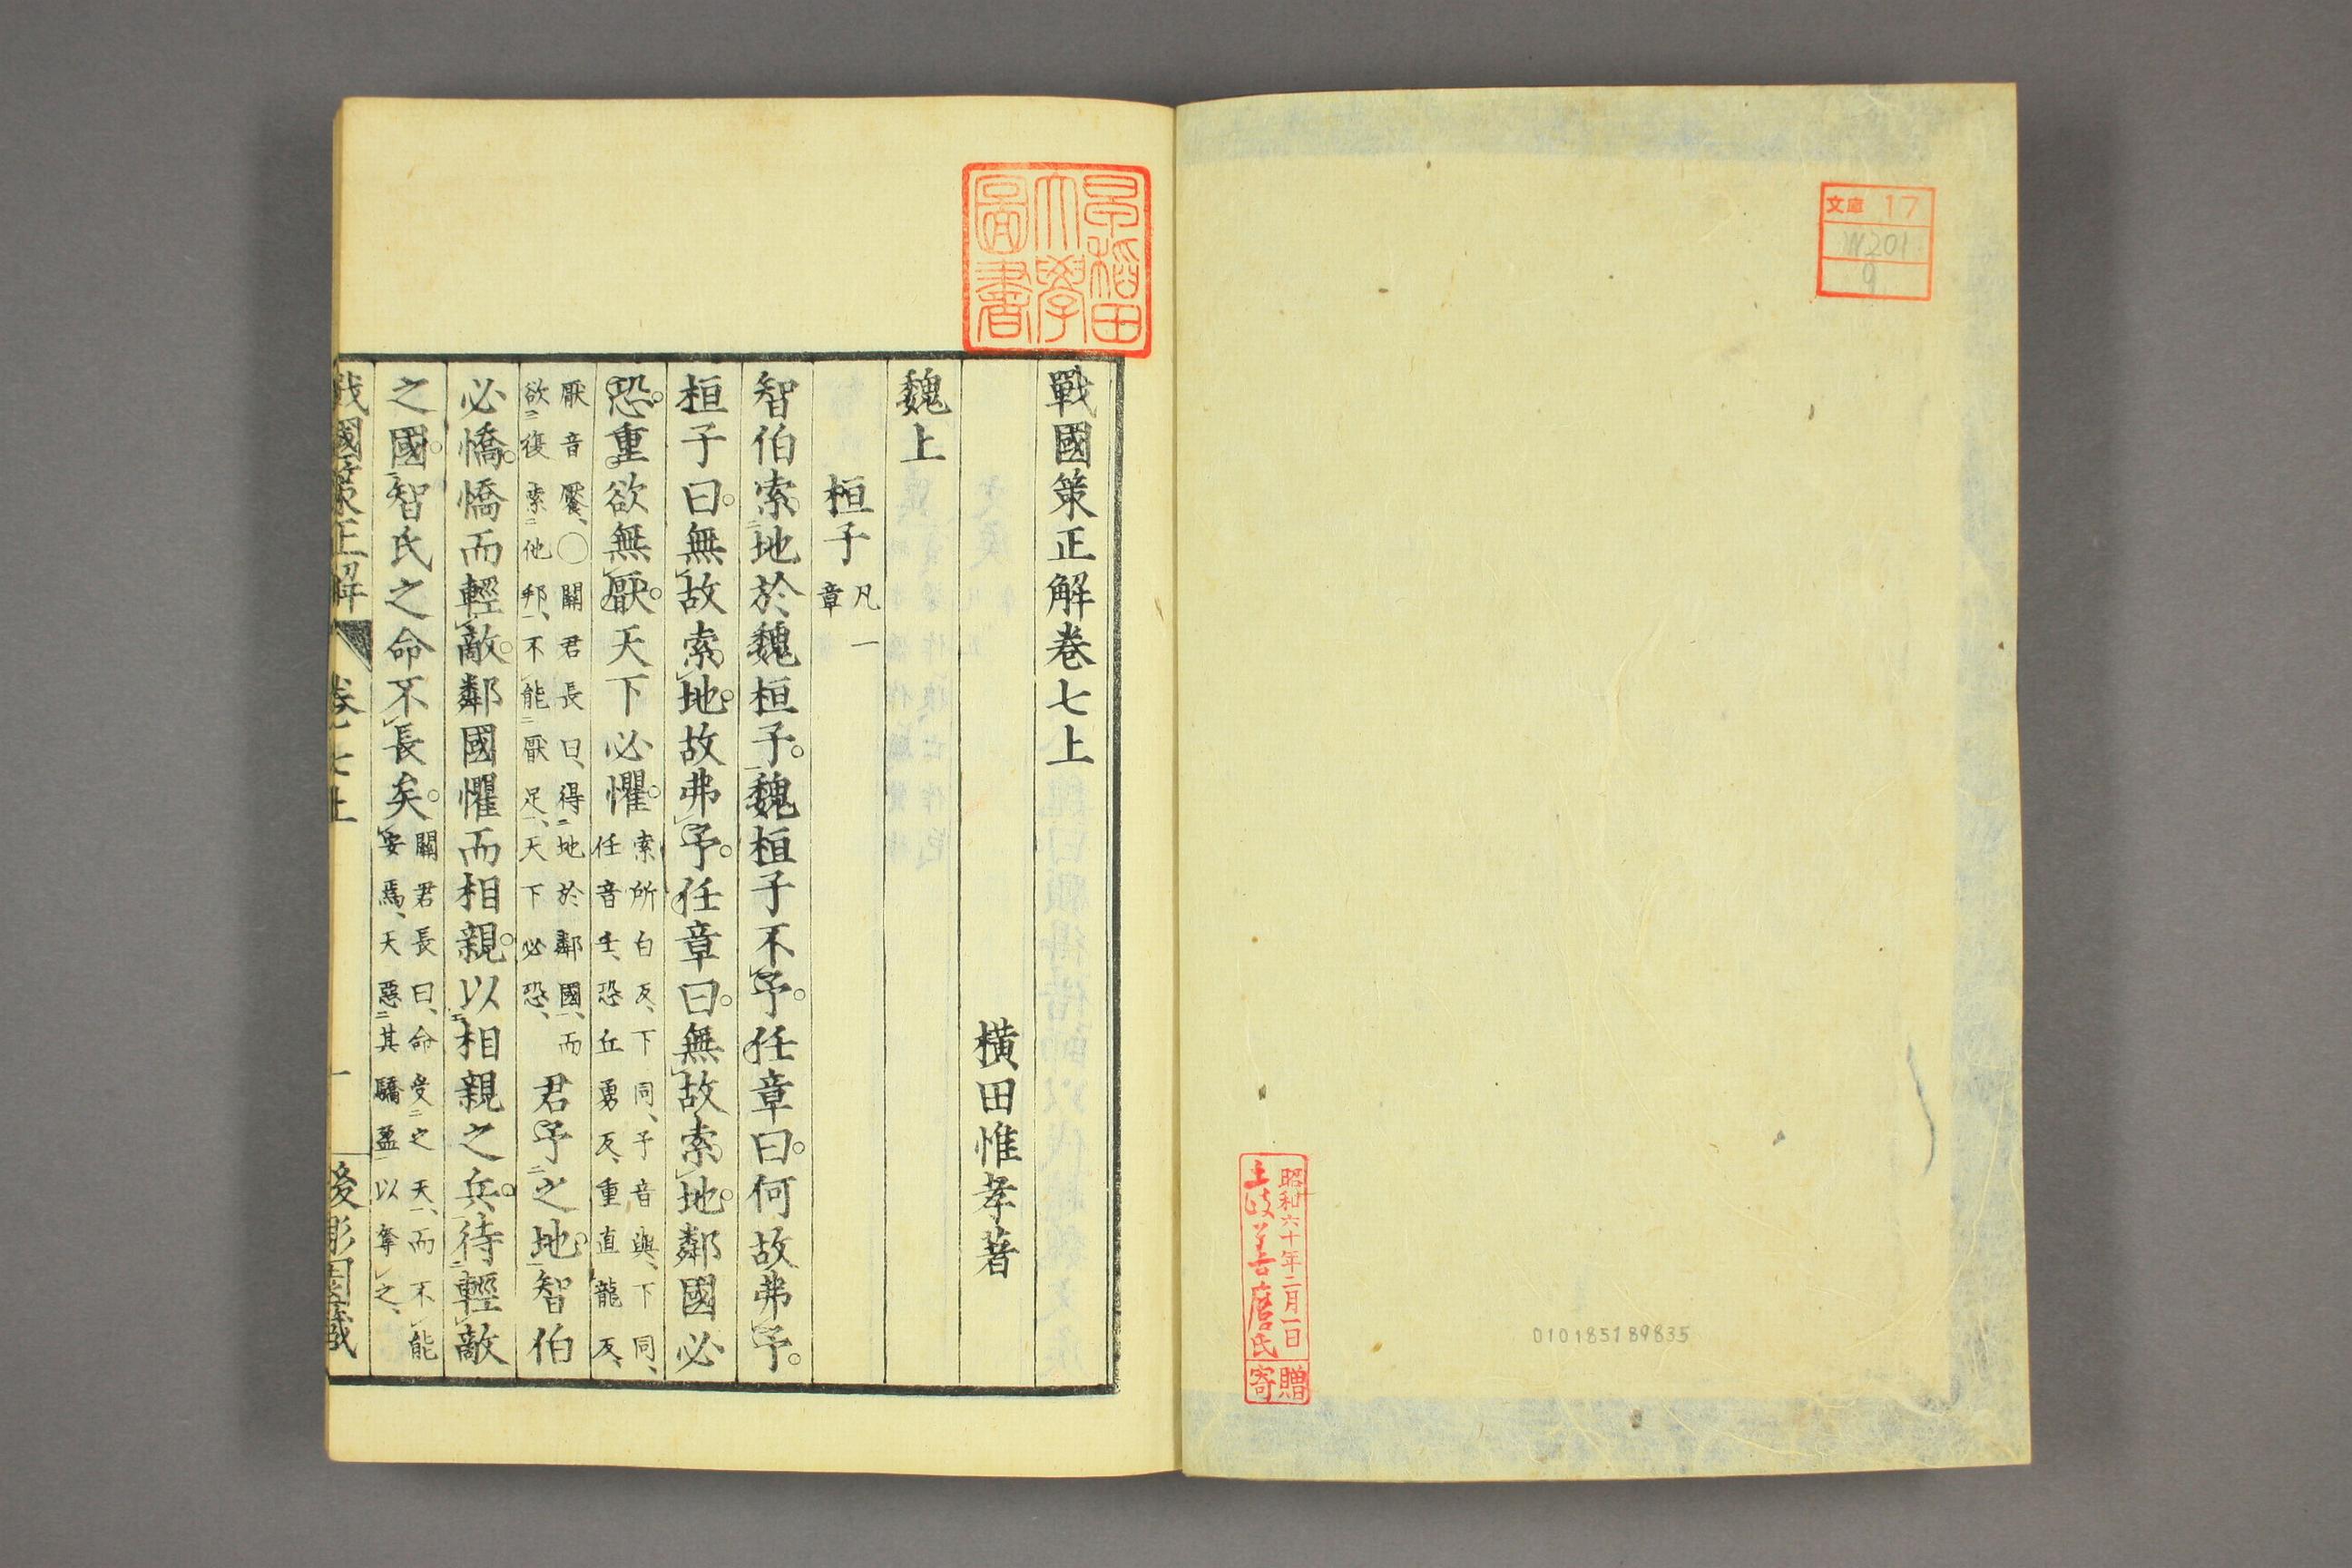 文庫 17
W201
9
昭和六十年二月一日
土岐善麿氏
寄贈
010185189835
早稲田大學圖書
戰國策正解卷七上
橫田惟孝著
魏上
桓子 凡一章
智伯索地於魏桓子。魏桓子不予。任章曰。何故弗予。
桓子曰。無故索地。故弗予。任章曰。無故索地。鄰國必
恐。重欲無厭。天下必懼。索所白反、下同、予音與、下同、任音壬、恐丘勇反、重直龍反、
厭音饜、○關君長曰、得地於鄰國、而欲復索他邦、不能厭足、天下必恐、君予之地。智伯
必憍。憍而輕敵。鄰國懼而相親。以相親之兵。待輕敵
之國。智氏之命不長矣。關君長曰、命受之天、而不能安焉、天惡其驕盈以奪之、
戰國策正解 卷七上 一 後彫園藏